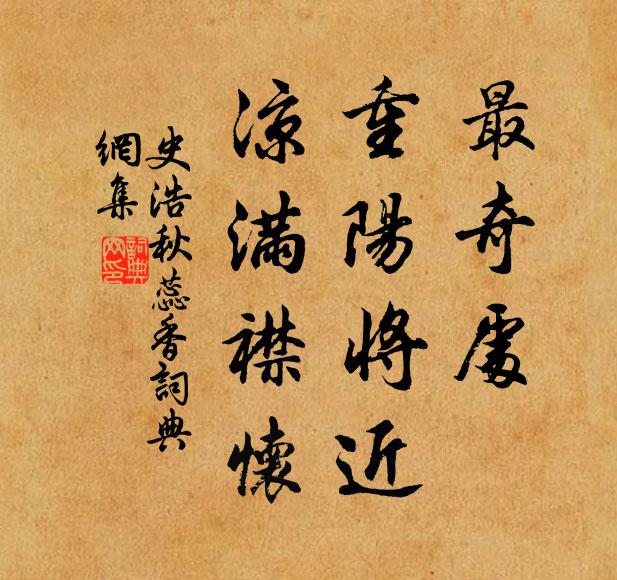 最奇處
重陽將近
凉滿襟懷
史浩秋蕊香詞典
網集
詞典
网印